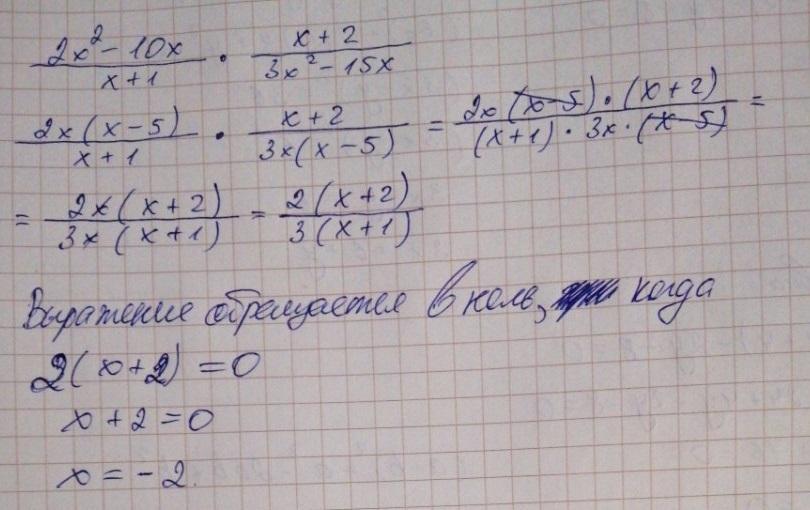 2x² - 10x / x + 1 · x + 2 / 3x² - 15x
2x(x - 5) / x + 1 · x + 2 / 3x(x - 5) = 2x(x - 5) · (x + 2) / (x + 1) · 3x · (x - 5) =
= 2x(x + 2) / 3x(x + 1) = 2(x + 2) / 3(x + 1)
Выражение обращается в ноль, когда
2(x + 2) = 0
x + 2 = 0
x = - 2.